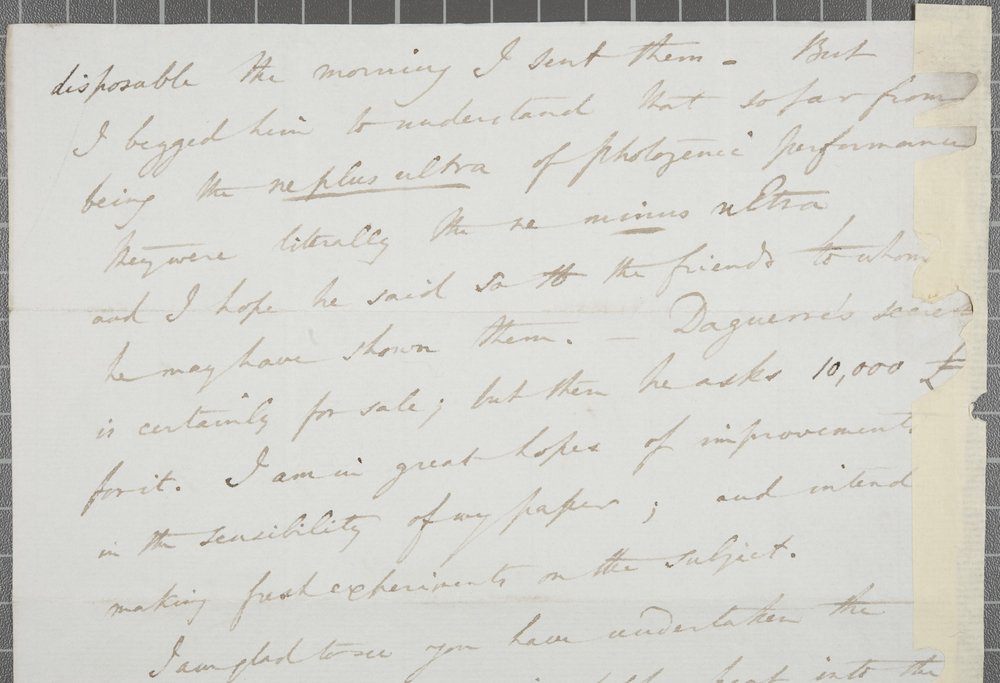 disposable the morning I sent them - But
I begged him to understand that so far from
being the ne plus ultra of photogenic performance
they were literally the ne minus ultra
and I hope he said so to the friends to whom
he may have shown them. - Daguerre's secret
is certainly for sale; but then he asks 10,000 £
for it. I am in great hopes of improvements
in the sensibility of my paper; and intend
making fresh experiments on the subject.
I am glad to see you have undertaken the
heat into the